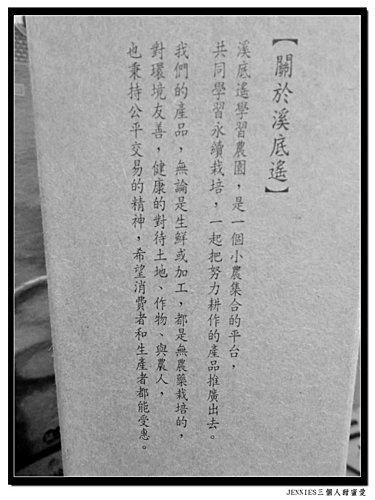 【關於溪底遙】
溪底遙學習農園，是一個小農集合的平台，
共同學習永續栽培，一起把努力耕作的產品推廣出去。
我們的產品，無論是生鮮或加工，都是無農藥栽培的，
對環境友善，健康的對待土地、作物、與農人，
也秉持公平交易的精神，希望消費者和生產者都能受惠。
JENNIES三個人甜蜜蜜